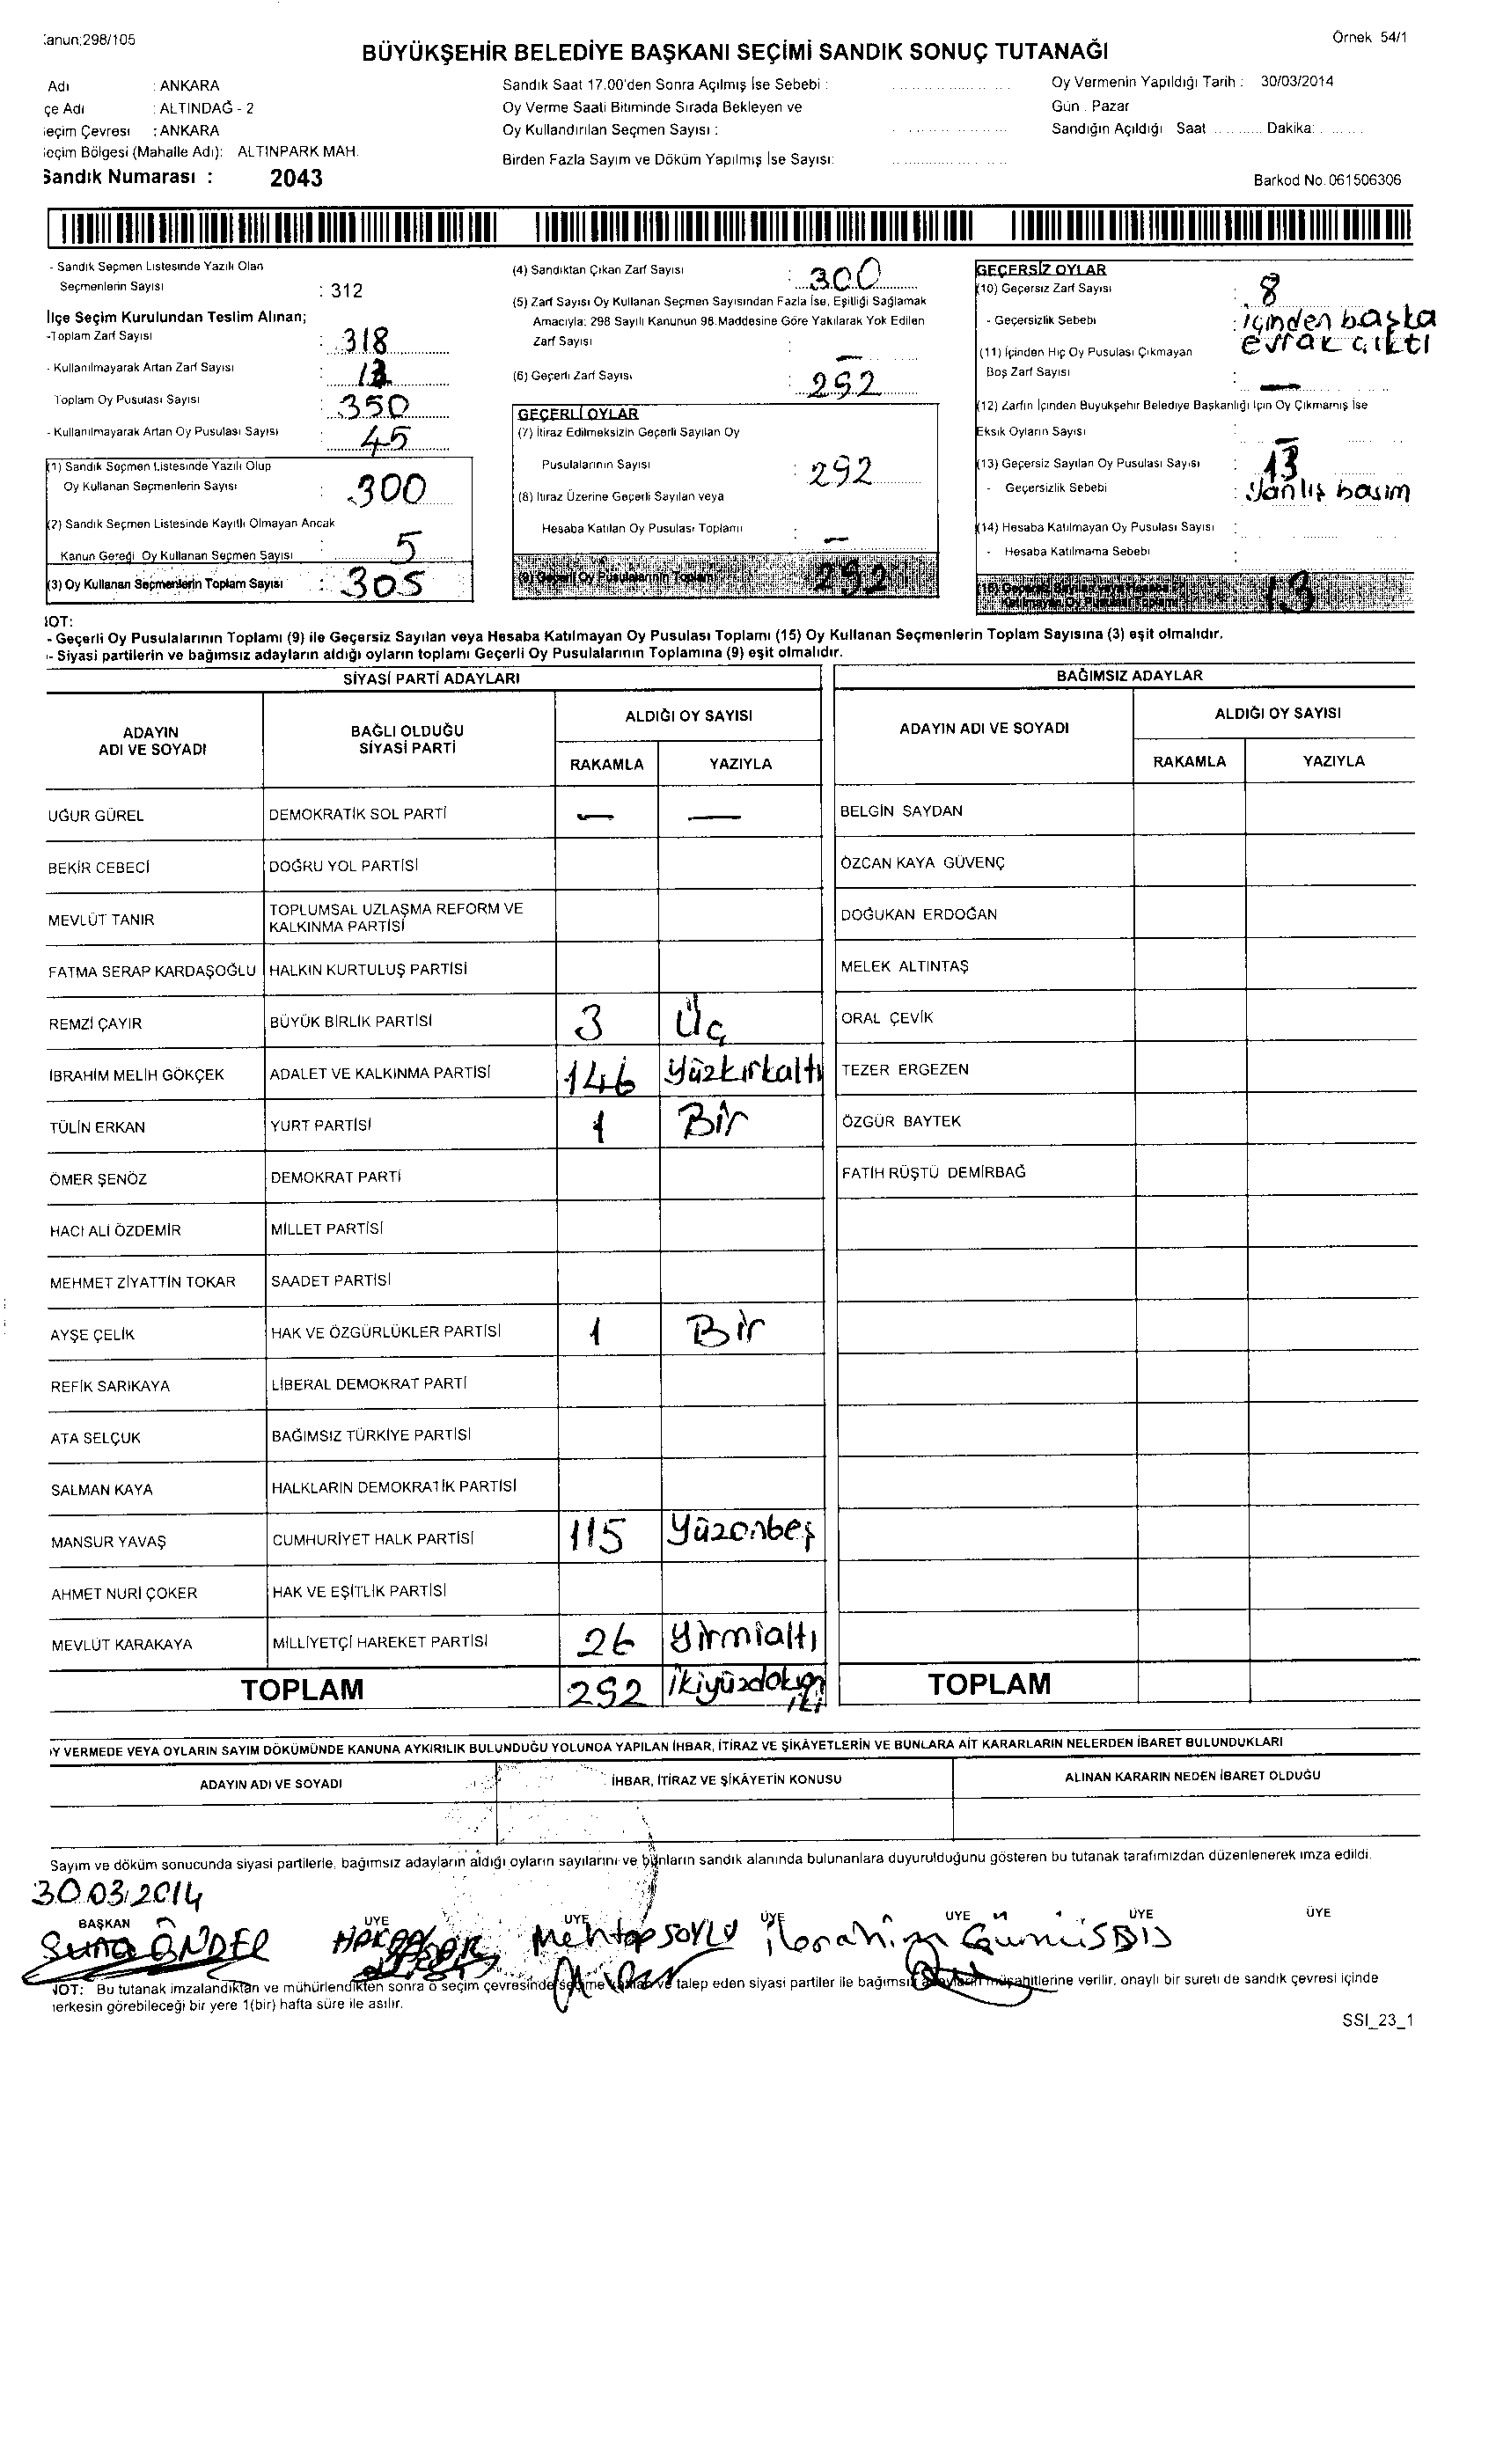 Kanun:298/105
Örnek 54/1
BÜYÜKŞEHİR BELEDİYE BAŞKANI SEÇİMİ SANDIK SONUÇ TUTANAĞI
Adı : ANKARA
çe Adı : ALTINDAĞ - 2
eçim Çevresi : ANKARA
eçim Bölgesi (Mahalle Adı): ALTINPARK MAH.
Sandık Numarası : 2043
Sandık Saat 17.00'den Sonra Açılmış İse Sebebi :
Oy Verme Saati Bitiminde Sırada Bekleyen ve
Oy Kullandırılan Seçmen Sayısı :
Birden Fazla Sayım ve Döküm Yapılmış İse Sayısı:
Oy Vermenin Yapıldığı Tarih : 30/03/2014
Gün : Pazar
Sandığın Açıldığı Saat ........... Dakika: .........
Barkod No:061506306
- Sandık Seçmen Listesinde Yazılı Olan
Seçmenlerin Sayısı : 312
İlçe Seçim Kurulundan Teslim Alınan;
-Toplam Zarf Sayısı : 318
- Kullanılmayarak Artan Zarf Sayısı : 13
Toplam Oy Pusulası Sayısı : 350
- Kullanılmayarak Artan Oy Pusulası Sayısı : 45
(1) Sandık Seçmen Listesinde Yazılı Olup
Oy Kullanan Seçmenlerin Sayısı : 300
(2) Sandık Seçmen Listesinde Kayıtlı Olmayan Ancak
Kanun Gereği Oy Kullanan Seçmen Sayısı : 5
(3) Oy Kullanan Seçmenlerin Toplam Sayısı : 305
(4) Sandıktan Çıkan Zarf Sayısı : 300
(5) Zarf Sayısı Oy Kullanan Seçmen Sayısından Fazla İse, Eşitliği Sağlamak
Amacıyla: 298 Sayılı Kanunun 98.Maddesine Göre Yakılarak Yok Edilen
Zarf Sayısı : —
(6) Geçerli Zarf Sayısı : 292
GEÇERLİ OYLAR
(7) İtiraz Edilmeksizin Geçerli Sayılan Oy
Pusulalarının Sayısı : 292
(8) İtiraz Üzerine Geçerli Sayılan veya
Hesaba Katılan Oy Pusulası Toplamı : —
(9) Geçerli Oy Pusulalarının Toplamı 292
GEÇERSİZ OYLAR
(10) Geçersiz Zarf Sayısı : 8
- Geçersizlik Sebebi : içinden başka
evrak çıktı
(11) İçinden Hiç Oy Pusulası Çıkmayan
Boş Zarf Sayısı : —
(12) Zarfın İçinden Büyükşehir Belediye Başkanlığı İçin Oy Çıkmamış İse
Eksik Oyların Sayısı : —
(13) Geçersiz Sayılan Oy Pusulası Sayısı : 13
- Geçersizlik Sebebi : Yanlış basım
(14) Hesaba Katılmayan Oy Pusulası Sayısı :
- Hesaba Katılmama Sebebi :
(15) Geçersiz Sayılan veya Hesaba
Katılmayan Oy Pusulası Toplamı 13
NOT:
- Geçerli Oy Pusulalarının Toplamı (9) ile Geçersiz Sayılan veya Hesaba Katılmayan Oy Pusulası Toplamı (15) Oy Kullanan Seçmenlerin Toplam Sayısına (3) eşit olmalıdır.
- Siyasi partilerin ve bağımsız adayların aldığı oyların toplamı Geçerli Oy Pusulalarının Toplamına (9) eşit olmalıdır.
SİYASİ PARTİ ADAYLARI
ADAYIN ADI VE SOYADI
BAĞLI OLDUĞU SİYASİ PARTİ
ALDIĞI OY SAYISI
RAKAMLA YAZIYLA
UĞUR GÜREL DEMOKRATİK SOL PARTİ — —
BEKİR CEBECİ DOĞRU YOL PARTİSİ
MEVLÜT TANIR TOPLUMSAL UZLAŞMA REFORM VE
KALKINMA PARTİSİ
FATMA SERAP KARDAŞOĞLU HALKIN KURTULUŞ PARTİSİ
REMZİ ÇAYIR BÜYÜK BİRLİK PARTİSİ 3 Üç
İBRAHİM MELİH GÖKÇEK ADALET VE KALKINMA PARTİSİ 146 Yüzkırkaltı
TÜLİN ERKAN YURT PARTİSİ 1 Bir
ÖMER ŞENÖZ DEMOKRAT PARTİ
HACI ALİ ÖZDEMİR MİLLET PARTİSİ
MEHMET ZİYATTİN TOKAR SAADET PARTİSİ
AYŞE ÇELİK HAK VE ÖZGÜRLÜKLER PARTİSİ 1 Bir
REFİK SARIKAYA LİBERAL DEMOKRAT PARTİ
ATA SELÇUK BAĞIMSIZ TÜRKİYE PARTİSİ
SALMAN KAYA HALKLARIN DEMOKRATİK PARTİSİ
MANSUR YAVAŞ CUMHURİYET HALK PARTİSİ 115 Yüzonbeş
AHMET NURİ ÇOKER HAK VE EŞİTLİK PARTİSİ
MEVLÜT KARAKAYA MİLLİYETÇİ HAREKET PARTİSİ 26 Yirmialtı
TOPLAM 292
BAĞIMSIZ ADAYLAR
ADAYIN ADI VE SOYADI
ALDIĞI OY SAYISI
RAKAMLA YAZIYLA
BELGİN SAYDAN
ÖZCAN KAYA GÜVENÇ
DOĞUKAN ERDOĞAN
MELEK ALTINTAŞ
ORAL ÇEVİK
TEZER ERGEZEN
ÖZGÜR BAYTEK
FATİH RÜŞTÜ DEMİRBAĞ
TOPLAM
OY VERMEDE VEYA OYLARIN SAYIM DÖKÜMÜNDE KANUNA AYKIRILIK BULUNDUĞU YOLUNDA YAPILAN İHBAR, İTİRAZ VE ŞİKÂYETLERİN VE BUNLARA AİT KARARLARIN NELERDEN İBARET BULUNDUKLARI
ADAYIN ADI VE SOYADI İHBAR, İTİRAZ VE ŞİKÂYETİN KONUSU ALINAN KARARIN NEDEN İBARET OLDUĞU
Sayım ve döküm sonucunda siyasi partilerle, bağımsız adayların aldığı oyların sayılarını ve bunların sandık alanında bulunanlara duyurulduğunu gösteren bu tutanak tarafımızdan düzenlenerek imza edildi.
30.03.2014
BAŞKAN ÜYE ÜYE ÜYE ÜYE ÜYE ÜYE
Suna ÖNDEL Mehtap SOYLU İbrahim
NOT: Bu tutanak imzalandıktan ve mühürlendikten sonra o seçim çevresinde seçime katılan ve talep eden siyasi partiler ile bağımsız adayların müşahitlerine verilir, onaylı bir sureti de sandık çevresi içinde
herkesin görebileceği bir yere 1(bir) hafta süre ile asılır.
SSI_23_1